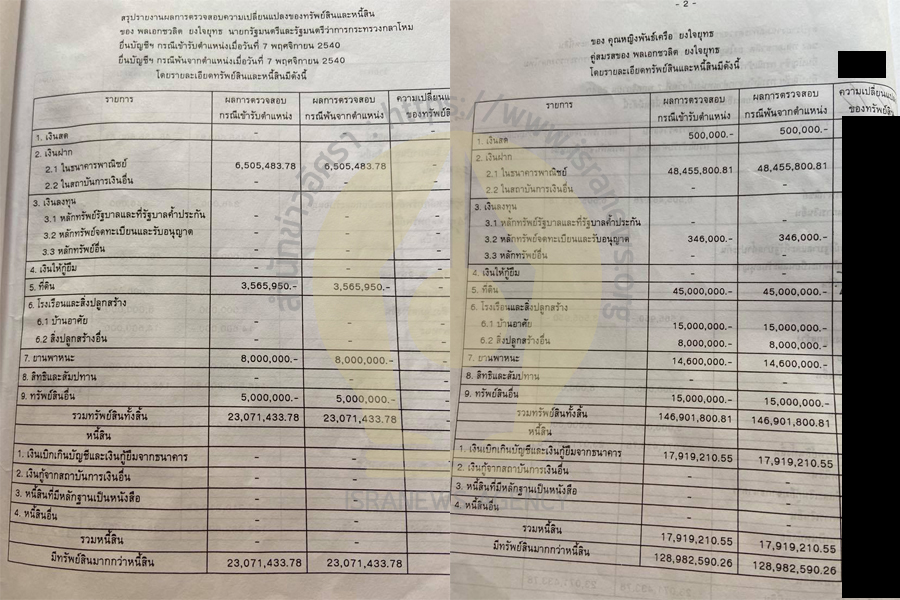 สรุปรายงานผลการตรวจสอบความเปลี่ยนแปลงของทรัพย์สินและหนี้สิน
ของ พลเอกชวลิต ยงใจยุทธ นายกรัฐมนตรีและรัฐมนตรีว่าการกระทรวงกลาโหม
ยื่นบัญชีฯ กรณีเข้ารับตำแหน่งเมื่อวันที่ 7 พฤศจิกายน 2540
ยื่นบัญชีฯ กรณีพ้นจากตำแหน่งเมื่อวันที่ 7 พฤศจิกายน 2540
โดยรายละเอียดทรัพย์สินและหนี้สินมีดังนี้
รายการ ผลการตรวจสอบ ผลการตรวจสอบ ความเปลี่ยนแปลง
กรณีเข้ารับตำแหน่ง กรณีพ้นจากตำแหน่ง ของทรัพย์สิ
1. เงินสด - - -
2. เงินฝาก
2.1 ในธนาคารพาณิชย์ 6,505,483.78 6,505,483.78 -
2.2 ในสถาบันการเงินอื่น - - -
3. เงินลงทุน
3.1 หลักทรัพย์รัฐบาลและที่รัฐบาลค้ำประกัน - - -
3.2 หลักทรัพย์จดทะเบียนและรับอนุญาต - - -
3.3 หลักทรัพย์อื่น - - -
4. เงินให้กู้ยืม - - -
5. ที่ดิน 3,565,950.- 3,565,950.- -
6. โรงเรือนและสิ่งปลูกสร้าง
6.1 บ้านอาศัย - - -
6.2 สิ่งปลูกสร้างอื่น - - -
7. ยานพาหนะ 8,000,000.- 8,000,000.- -
8. สิทธิและสัมปทาน - - -
9. ทรัพย์สินอื่น 5,000,000.- 5,000,000.- -
รวมทรัพย์สินทั้งสิ้น 23,071,433.78 23,071,433.78 -
หนี้สิน
1. เงินเบิกเกินบัญชีและเงินกู้ยืมจากธนาคาร - - -
2. เงินกู้จากสถาบันการเงินอื่น - - -
3. หนี้สินที่มีหลักฐานเป็นหนังสือ - - -
4. หนี้สินอื่น - - -
รวมหนี้สิน - - -
มีทรัพย์สินมากกว่าหนี้สิน 23,071,433.78 23,071,433.78 -
- 2 -
ของ คุณหญิงพันธ์เครือ ยงใจยุทธ
คู่สมรสของ พลเอกชวลิต ยงใจยุทธ
โดยรายละเอียดทรัพย์สินและหนี้สินมีดังนี้
รายการ ผลการตรวจสอบ ผลการตรวจสอบ ความเปลี่ยนแปลง
กรณีเข้ารับตำแหน่ง กรณีพ้นจากตำแหน่ง ของทรัพย์สิ
1. เงินสด 500,000.- 500,000.-
2. เงินฝาก
2.1 ในธนาคารพาณิชย์ 48,455,800.81 48,455,800.81
2.2 ในสถาบันการเงินอื่น - -
3. เงินลงทุน
3.1 หลักทรัพย์รัฐบาลและที่รัฐบาลค้ำประกัน - -
3.2 หลักทรัพย์จดทะเบียนและรับอนุญาต 346,000.- 346,000.-
3.3 หลักทรัพย์อื่น - -
4. เงินให้กู้ยืม - -
5. ที่ดิน 45,000,000.- 45,000,000.-
6. โรงเรือนและสิ่งปลูกสร้าง
6.1 บ้านอาศัย 15,000,000.- 15,000,000.-
6.2 สิ่งปลูกสร้างอื่น 8,000,000.- 8,000,000.-
7. ยานพาหนะ 14,600,000.- 14,600,000.-
8. สิทธิและสัมปทาน - -
9. ทรัพย์สินอื่น 15,000,000.- 15,000,000.-
รวมทรัพย์สินทั้งสิ้น 146,901,800.81 146,901,800.81
หนี้สิน
1. เงินเบิกเกินบัญชีและเงินกู้ยืมจากธนาคาร 17,919,210.55 17,919,210.55
2. เงินกู้จากสถาบันการเงินอื่น - -
3. หนี้สินที่มีหลักฐานเป็นหนังสือ - -
4. หนี้สินอื่น - -
รวมหนี้สิน 17,919,210.55 17,919,210.55
มีทรัพย์สินมากกว่าหนี้สิน 128,982,590.26 128,982,590.26
สำนักข่าวอิศรา : https://www.isranews.org
ISRANEWS AGENCY